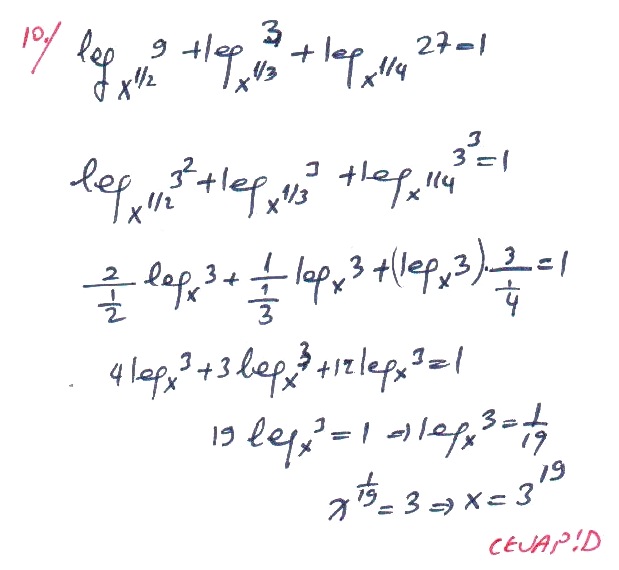 10/ log_{x^{1/2}} 9 + log_{x^{1/3}} 3 + log_{x^{1/4}} 27 = 1
log_{x^{1/2}} 3^2 + log_{x^{1/3}} 3 + log_{x^{1/4}} 3^3 = 1
\frac{2}{\frac{1}{2}} log_x 3 + \frac{1}{\frac{1}{3}} log_x 3 + (log_x 3) . \frac{3}{\frac{1}{4}} = 1
4 log_x 3 + 3 log_x 3 + 12 log_x 3 = 1
19 log_x 3 = 1 ⇒ log_x 3 = \frac{1}{19}
x^{\frac{1}{19}} = 3 ⇒ x = 3^{19}
CEVAP:D